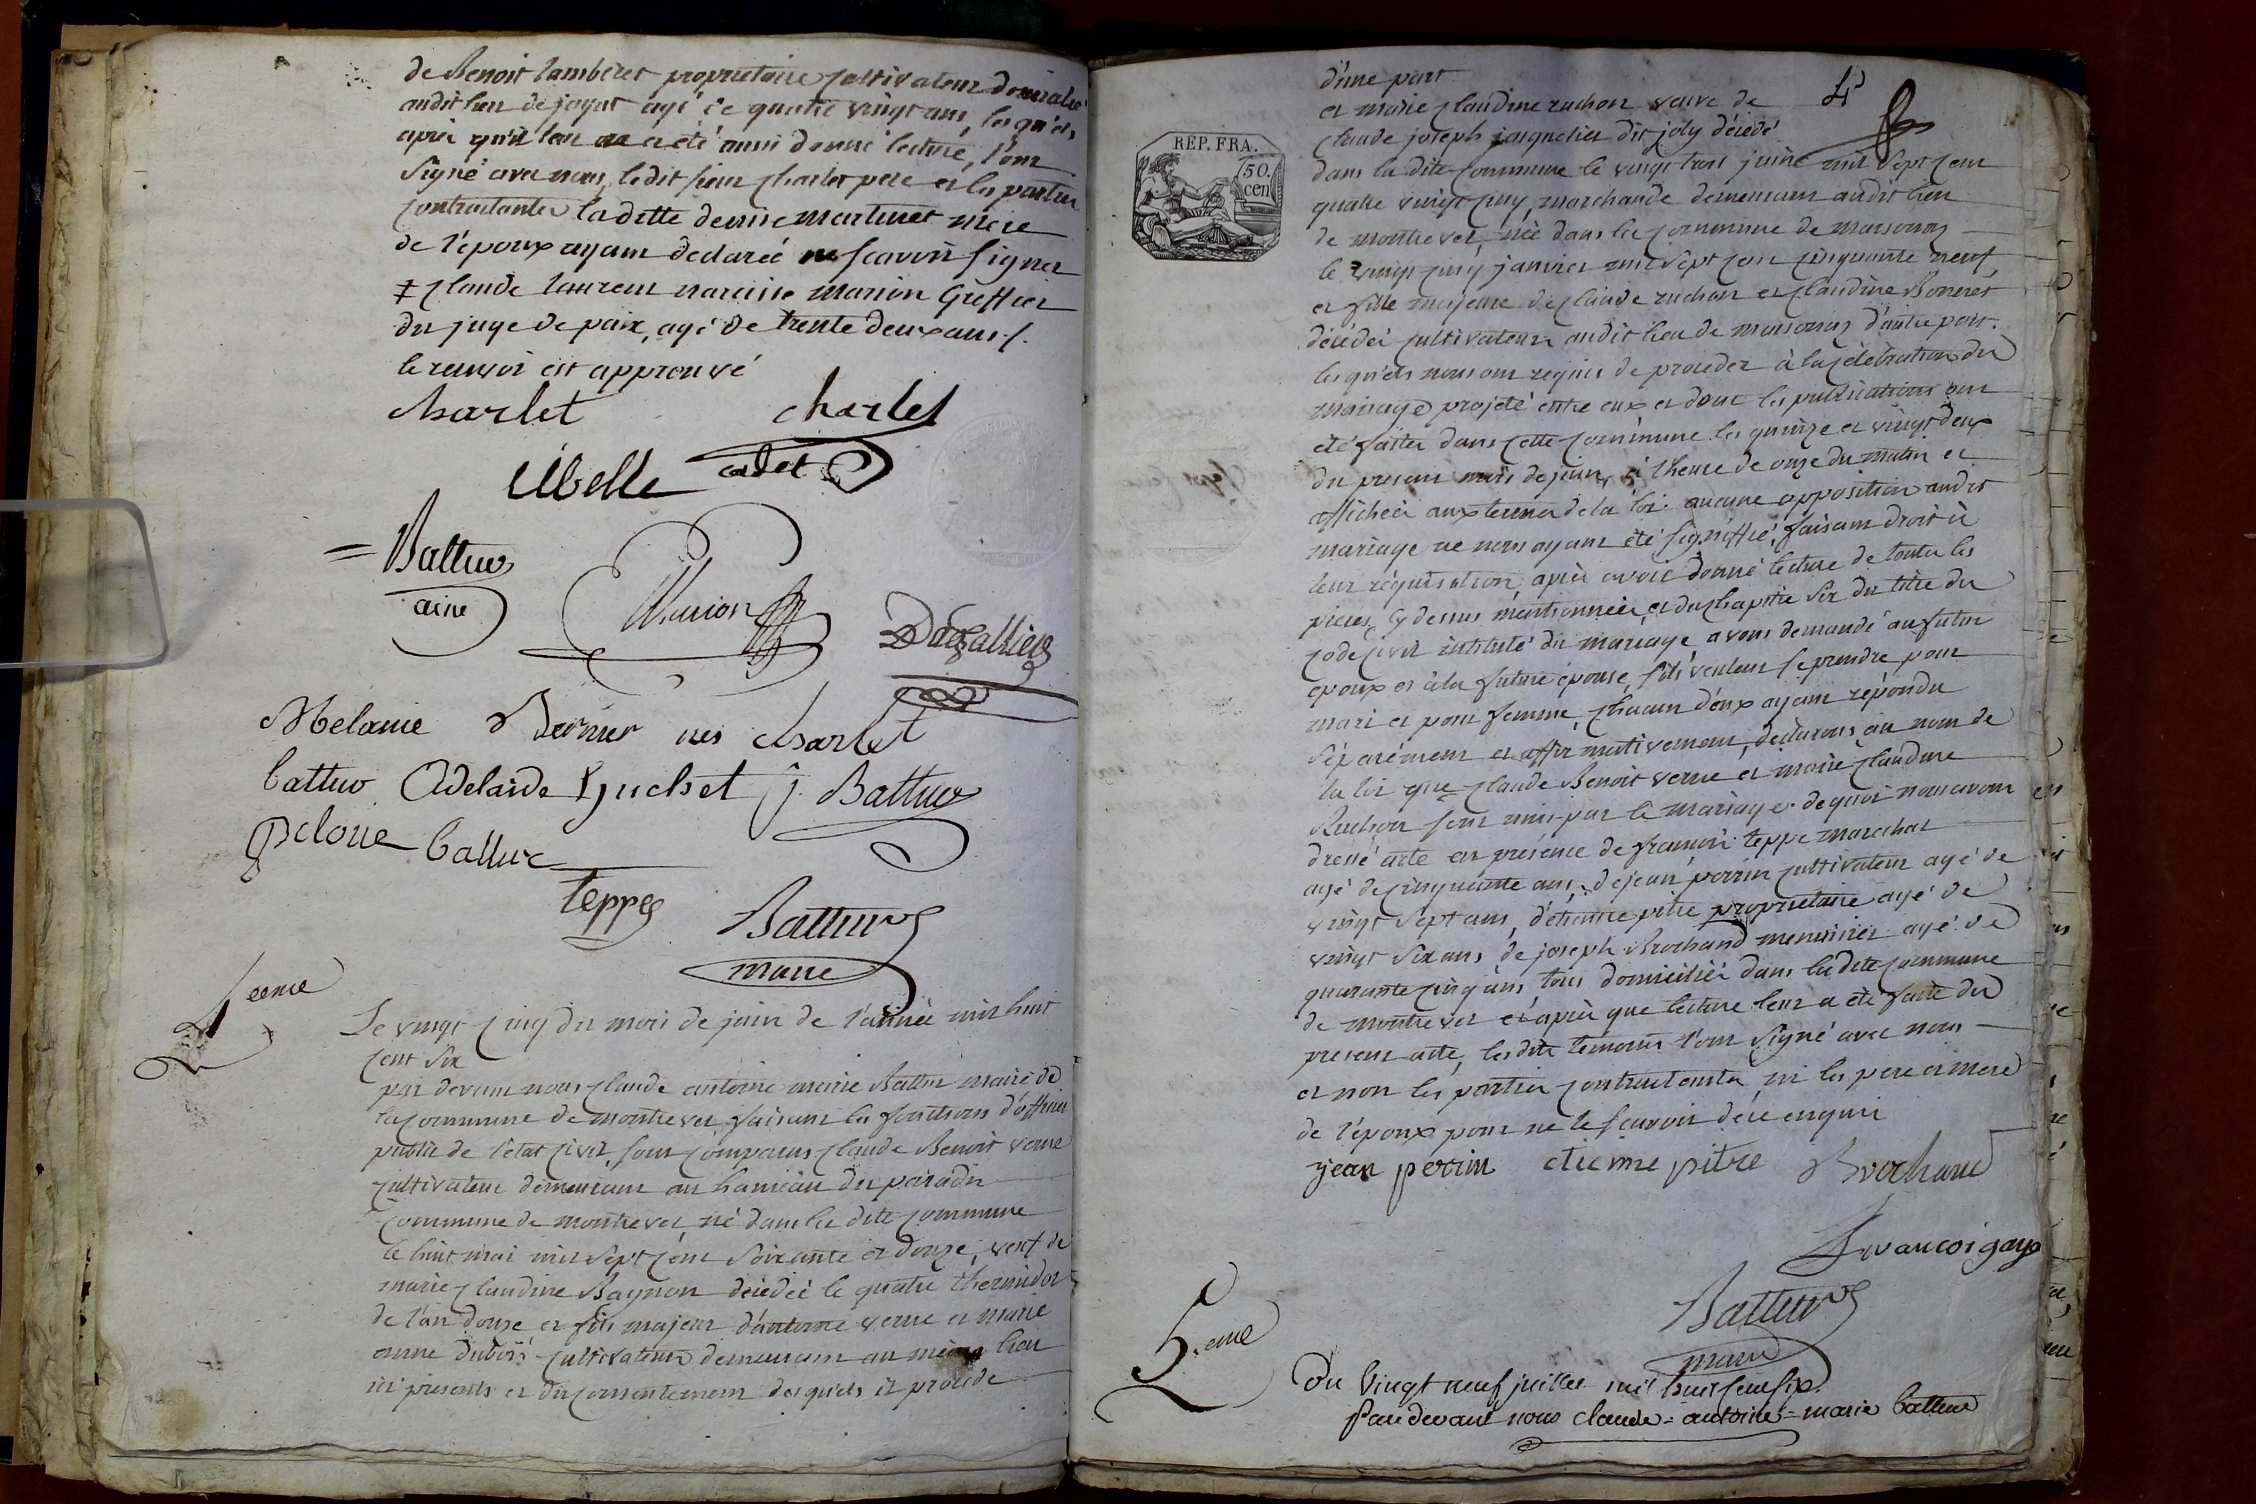 de Benoit Lamberet proprietaire cultivateur domicilié
audit lieu de jayat agé de quatre vingt ans, lesquels
après qu'il leur en a été aussi donné lecture, l'ont
signé avec nous, ledit sieur charlet pere et les parties
contractantes la ditte denise martinet mere
de l'époux ayant declaré ne scavoir signer
‡ claude laurent narcisse marion Greffier
du juge de paix, agé de trente deux ans /.
le renvoi est approuvé
charlet charlet
cadet
Libelle
Battur
ainé
Marion
Dagallier
Melanie Bernier née charlet
battur Adelaide Guchet J. Battur
pelone battur
teppe
Battur
maire
4 eeme
Le vingt cinq du mois de juin de l'année mil huit
cent six
par devant nous claude antoine marie Battur maire de
la commune de montrevel faisant les fonctions d'officier
public de l'état civil, sont comparus claude Benoit verne
cultivateur demeurant au hameau du paradis
commune de montrevel, né dans la dite commune
le huit mai mil sept cent soixante et douze, veuf de
marie claudine Bagnon décédée le quatre thermidor
de l'an douze et fils majeur d'antoine verne et marie
anne dubois cultivateurs demeurant au même lieu
ici presents et du consentement desquels il procede
d'une part
4
REP. FRA.
50.
cen
et marie claudine ruchon veuve de
claude joseph joignelier dit joly décédé
dans la dite commune le vingt trois juin mil sept cent
quatre vingt cinq, marchande demeurant audit lieu
de montrevel, née dans la commune de marsonnas
le vingt cinq janvier mil sept cent cinquante neuf
et fille majeure de claude ruchon et claudine Bonnet
décédés cultivateurs audit lieu de marsonnas d'autre part.
lesquels nous ont requis de proceder à la célébration du
mariage projeté entre eux et dont les publications ont
été faites dans cette commune les quinze et vingt deux
du present mois de juin, à l'heure de onze du matin et
affichées aux termes de la loi. aucune opposition audit
mariage ne nous ayant été signiffié, faisant droit à
leur réquisition, après avoir donné lecture de toutes les
pieces cy dessus mentionnées et du chapitre six du titre du
code civil intitulé du mariage, avons demandé au futur
époux et à la future épouse, s'ils veulent se prendre pour
mari et pour femme, chacun d'eux ayant répondu
séparément et affirmativement, déclarons au nom de
la loi que claude Benoit verne et marie claudine
Ruchon sont unis par le mariage. de quoi nous avons
dressé acte en présence de françois teppe marechal
agé de cinquante ans, de jean perrin cultivateur agé de
vingt sept ans, d'étienne pitre proprietaire agé de
vingt six ans, de joseph Brochand menuisier agé de
quarante cinq ans tous domiciliés dans la dite commune
de montrevel et après que lecture leur a été faite du
present acte, les dits temoins l'ont signé avec nous
et non les parties contractantes ni les pere et mere
de l'époux pour ne le scavoir de ce enquis
jean perrin etienne pitre Brochand
francoi
Battur
maire
5.eme
Du vingt neuf juillet mil huit cent six.
Pardevant nous claude-antoine-marie battur